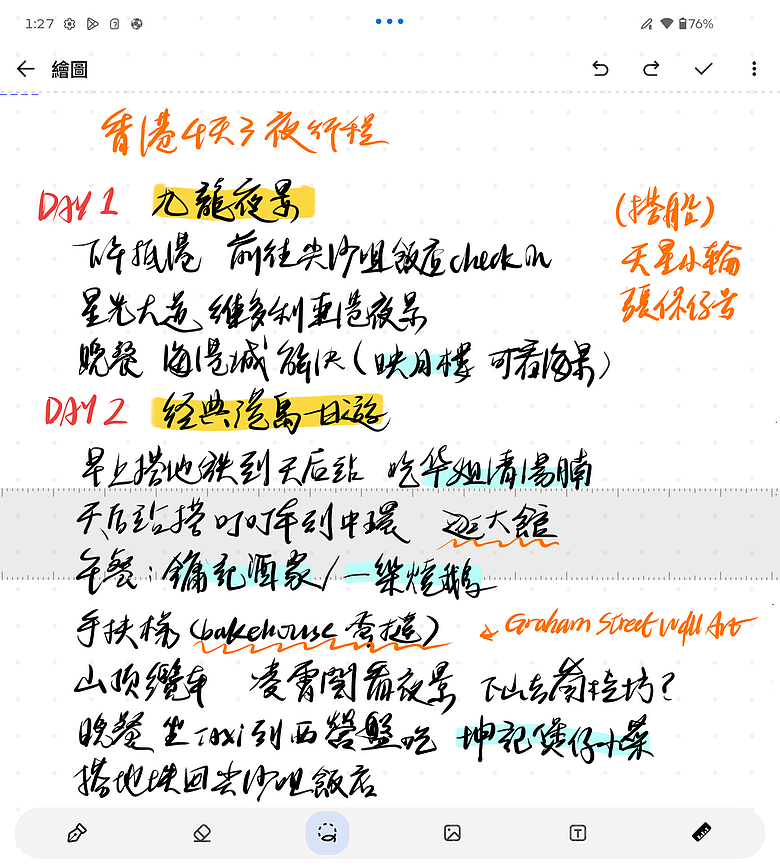 1:27
76%
繪圖
香港4天3夜行程
DAY 1 九龍夜景
(搭船)
下午抵港 前往尖沙咀飯店check in
天星小輪
張保仔号
星光大道 維多利亞港夜景
晚餐 海港城解決(映月樓 可看海景)
DAY 2 经典港島一日遊
早上搭地鐵到天后站 吃华姐清湯腩
天后站搭叮叮车到中環 逛大館
午餐:鏞記酒家/一樂燒鵝
手扶梯(bakehouse 蛋撻)
Graham Street Wall Art
山顶纜車 凌霄閣看夜景 下山去蘭桂坊?
晚餐 坐Taxi到西營盤吃 坤記煲仔小菜
搭地铁回尖沙咀飯店